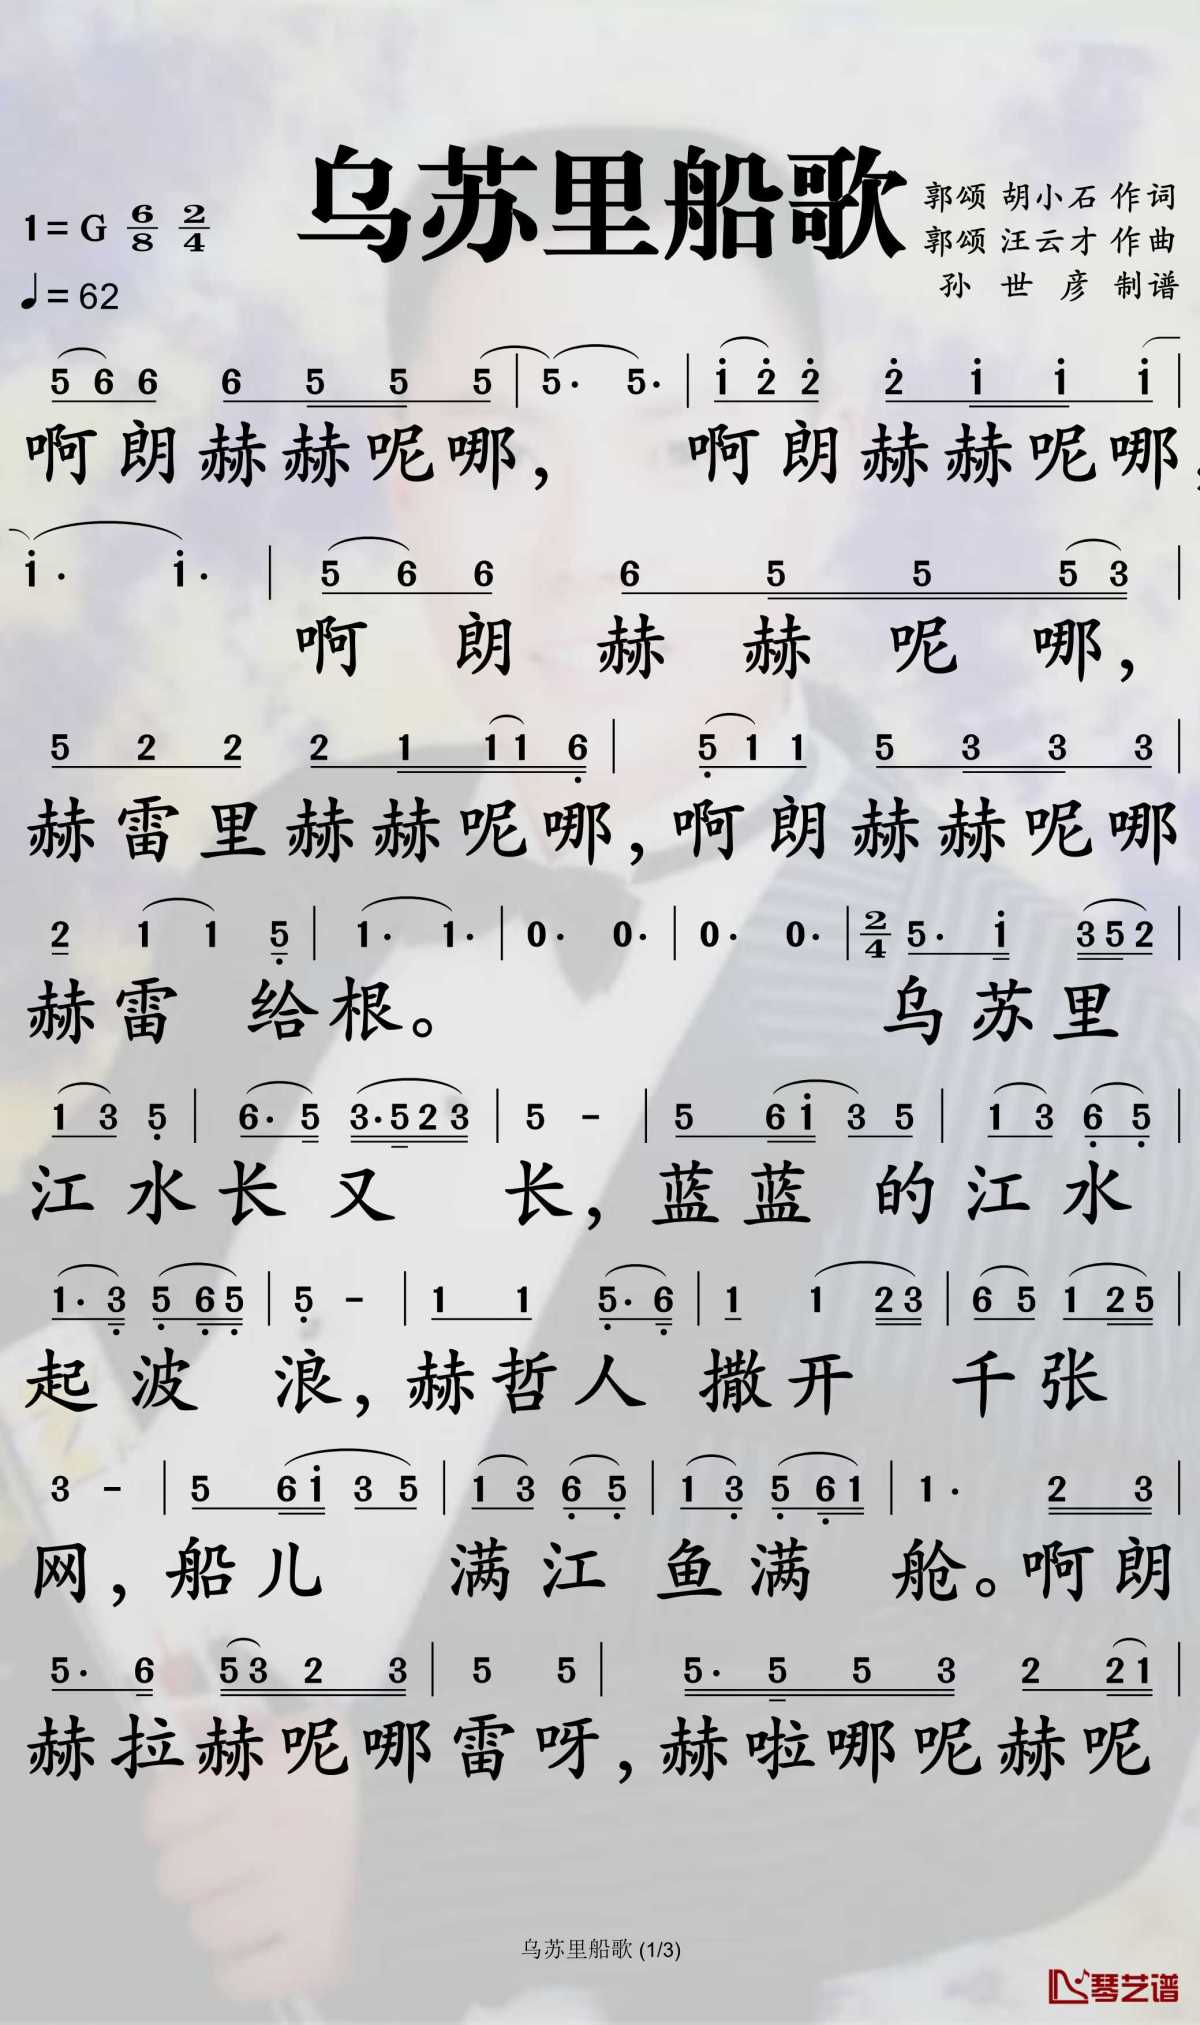 乌苏里船歌
1=G 6/8 2/4
♩=62
郭颂 胡小石 作词
郭颂 汪云才 作曲
孙 世 彦 制谱
5 6 6 6 5 5 5 | 5· 5· | 1 2 2 2 1 1 1 |
啊朗赫赫呢哪， 啊朗赫赫呢哪，
1· 1· | 5 6 6 6 5 5 5 3 |
啊朗赫赫呢哪，
5 2 2 2 1 1 1 6 | 5 1 1 5 3 3 3 |
赫雷里赫赫呢哪，啊朗赫赫呢哪
2 1 1 5 | 1· 1· | 0· 0· | 0· 0· | 2/4 5· 1 3 5 2 |
赫雷 给根。 乌苏里
1 3 5 | 6· 5 3· 5 2 3 | 5 - | 5 6 1 3 5 | 1 3 6 5 |
江水长又 长，蓝蓝 的江水
1· 3 5 6 5 | 5 - | 1 1 5· 6 | 1 1 2 3 | 6 5 1 2 5 |
起波 浪，赫哲人 撒开 千张
3 - | 5 6 1 3 5 | 1 3 6 5 | 1 3 5 6 1 | 1· 2 3 |
网，船儿 满江 鱼满 舱。啊朗
5· 6 5 3 2 3 | 5 5 | 5· 5 5 3 2 2 1 |
赫拉赫呢哪雷呀，赫啦哪呢赫呢
乌苏里船歌 (1/3)
琴艺谱